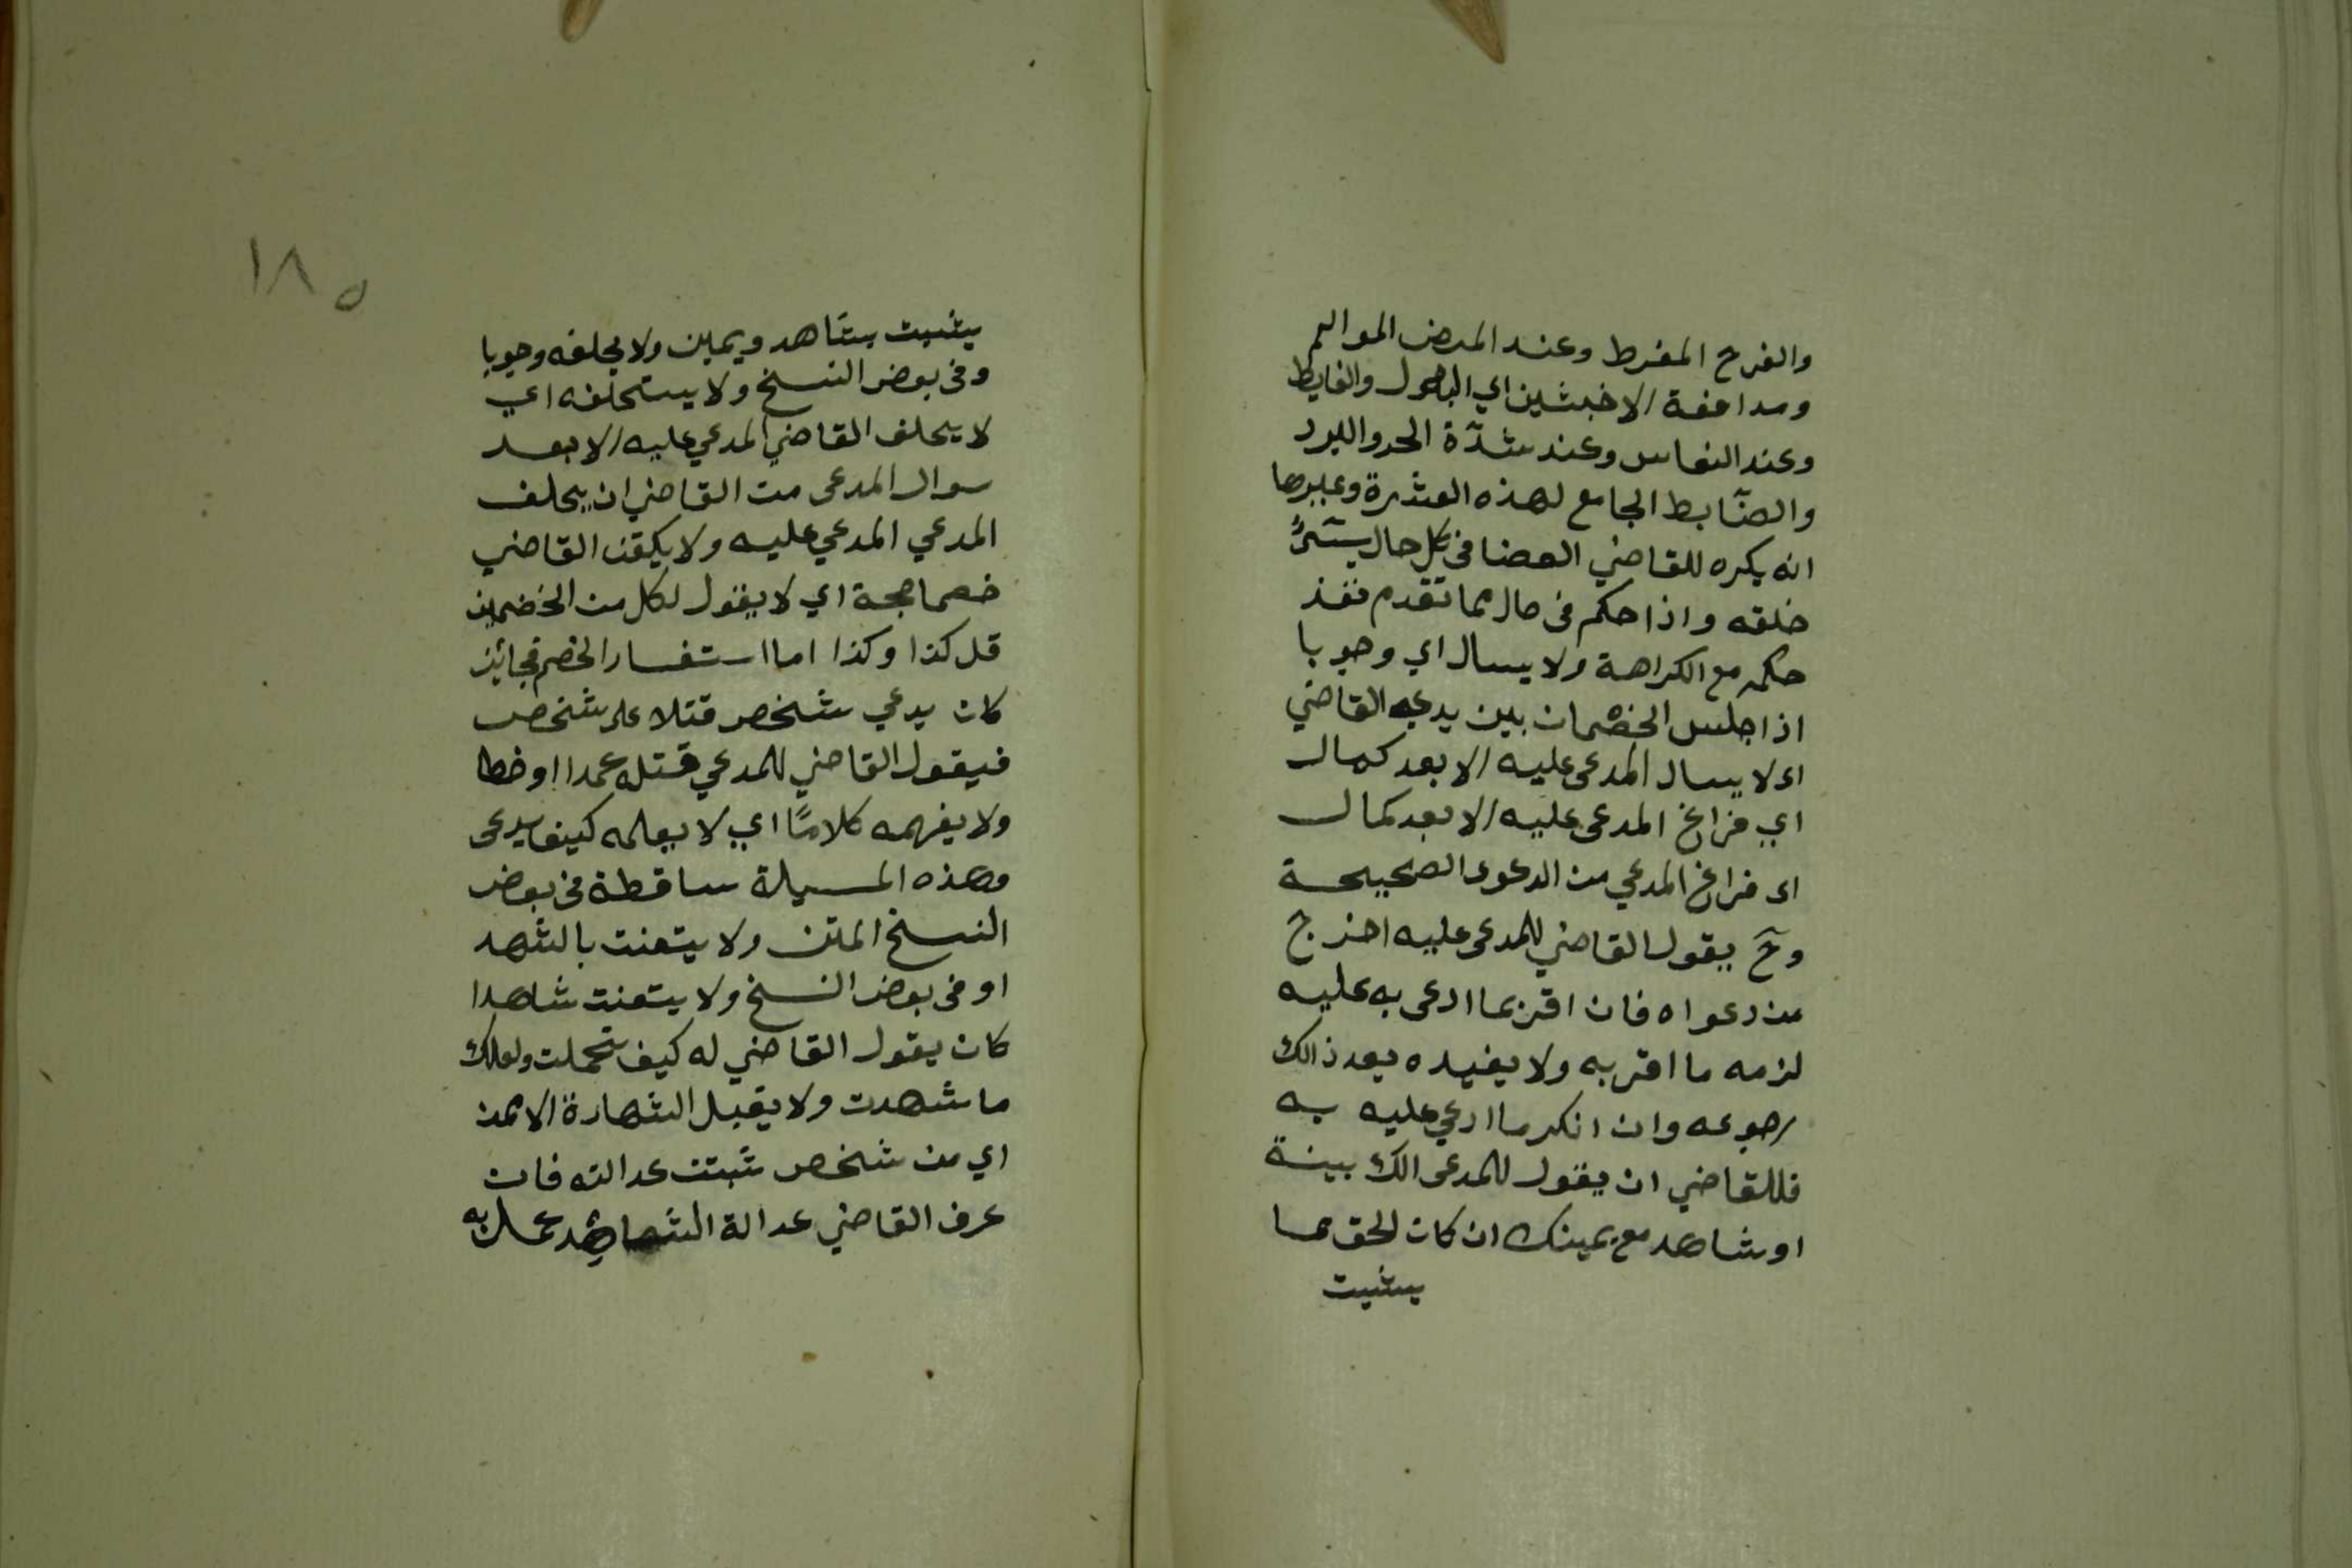 والفرح المفرط وعند المرض الموالم
ومدافعة الاخبثين اي البول والغايط
وعند النعاس وعند شدّة الحر والبرد
والضّابط الجامع لهذه العشرة وغيرها
انه يكره للقاضي القضا فى كل حال يسئ
خلقه واذا حكم فى حال مما تقدم نفذ
حكمه مع الكراهة ولا يسال اي وجوبا
اذا جلس الخصمان بين يديه القاضي
اى لا يسال المدعى عليه الا بعد كمال
اي فراغ المدعى عليه الا بعد كمال
اى فراغ المدعي من الدعوى الصحيحة
وحٓ يقول القاضي للمدعى عليه اخرج
من دعواه فان اقر بما ادعى به عليه
لزمه ما اقر به ولا يفيده بعد ذالك
رجوعه وان انكر ما ادعي عليه به
فللقاضي ان يقول للمدعى الك بينة
او شاهد مع يمينك ان كان الحق مما
يثبت
١٨٥
يثبت بشاهد ويمين ولا يحلفه وجوبا
وفى بعض النسخ ولا يستحلفه اي
لا يحلف القاضي المدعي عليه الا بعد
سوال المدعى من القاضي ان يحلف
المدعي المدعي عليه ولا يلقن القاضي
خصما حجة اي لا يقول لكل من الخصمين
قل كذا وكذا اما استفسار الخصم فجائز
كان يدعي شخص قتلا على شخص
فيقول القاضي للمدعي قتله عمدا او خطا
ولا يفهمه كلامًا اي لا يعلمه كيف يدعى
وهذه المسيلة ساقطة فى بعض
النسخ المتن ولا يتعنت بالشهد
او فى بعض النسخ ولا يتعنت شاهدا
كان يقول القاضي له كيف تحملت ولعلك
ما شهدت ولا يقبل الشهادة الا ممن
اي من شخص ثبتت عدالته فان
عرف القاضي عدالة الشاهد عمل به